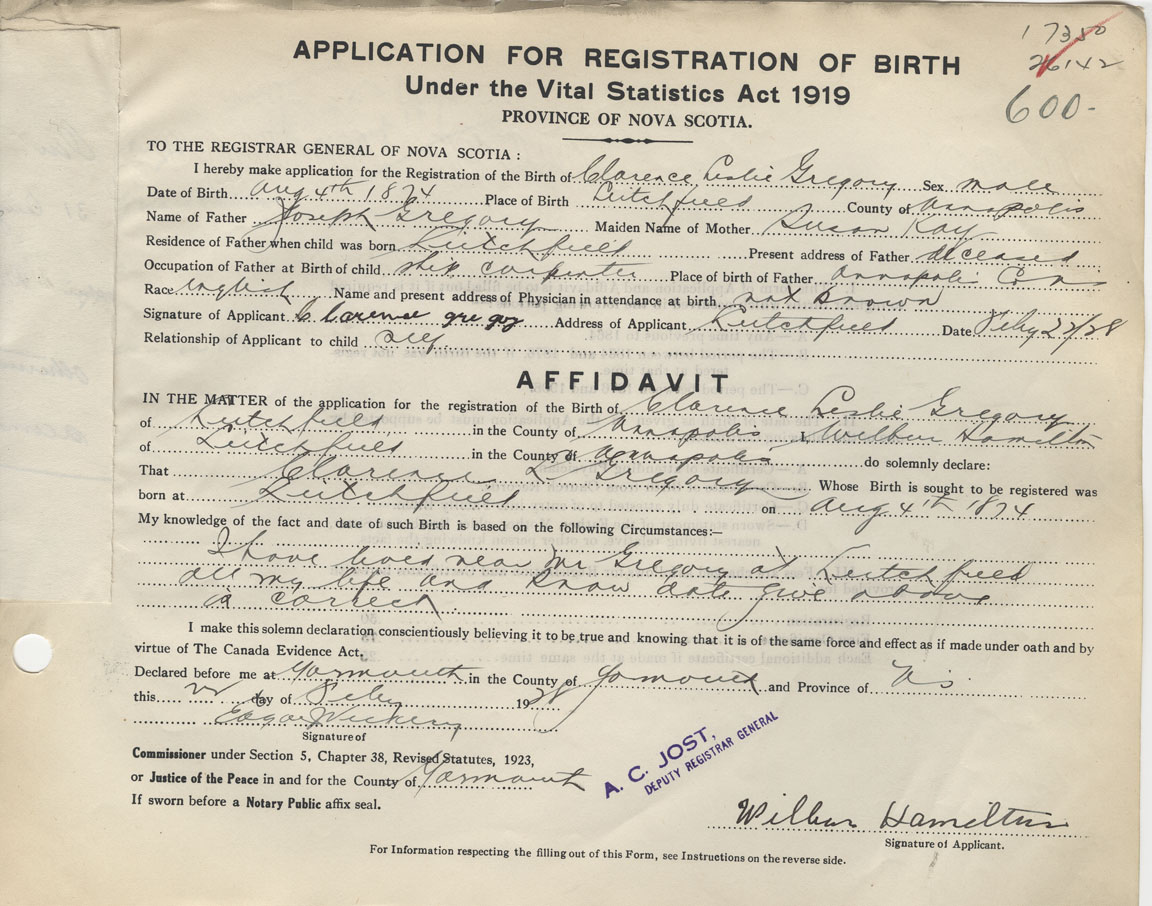 17350
26142
600-
APPLICATION FOR REGISTRATION OF BIRTH
Under the Vital Statistics Act 1919
PROVINCE OF NOVA SCOTIA.
TO THE REGISTRAR GENERAL OF NOVA SCOTIA :
I hereby make application for the Registration of the Birth of Clarence Leslie Gregory Sex male
Date of Birth Aug 4th 1874 Place of Birth Litchfield County of Annapolis
Name of Father Joseph Gregory Maiden Name of Mother Susan Kay
Residence of Father when child was born Litchfield Present address of Father deceased
Occupation of Father at Birth of child ship carpenter Place of birth of Father Annapolis Co ns
Race English Name and present address of Physician in attendance at birth not known
Signature of Applicant Clarence gregoy Address of Applicant Litchfield Date Feby 22/28
Relationship of Applicant to child Self
AFFIDAVIT
IN THE MATTER of the application for the registration of the Birth of Clarence Leslie Gregory
of Litchfield in the County of Annapolis I Wilbur Hamilton
of Litchfield in the County of Annapolis do solemnly declare:
That Clarence L Gregory Whose Birth is sought to be registered was
born at Litchfield on Aug 4th 1874
My knowledge of the fact and date of such Birth is based on the following Circumstances:—
I have lived near Mr Gregory at Litchfield
all my life and know date give above
is correct
I make this solemn declaration conscientiously believing it to be true and knowing that it is of the same force and effect as if made under oath and by
virtue of The Canada Evidence Act.
Declared before me at Yarmouth in the County of Yarmouth and Province of N.S.
this 22 day of Feby 1928
Edgar
Signature of
Commissioner under Section 5, Chapter 38, Revised Statutes, 1923,
or Justice of the Peace in and for the County of Yarmouth
If sworn before a Notary Public affix seal.
A. C. JOST,
DEPUTY REGISTRAR GENERAL
Wilbur Hamilton
Signature of Applicant.
For Information respecting the filling out of this Form, see Instructions on the reverse side.